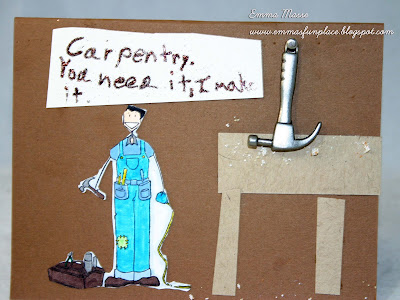 Emma Marse
www.emmasfunplace.blogspot.com
Carpentry.
You need it, I make
it.